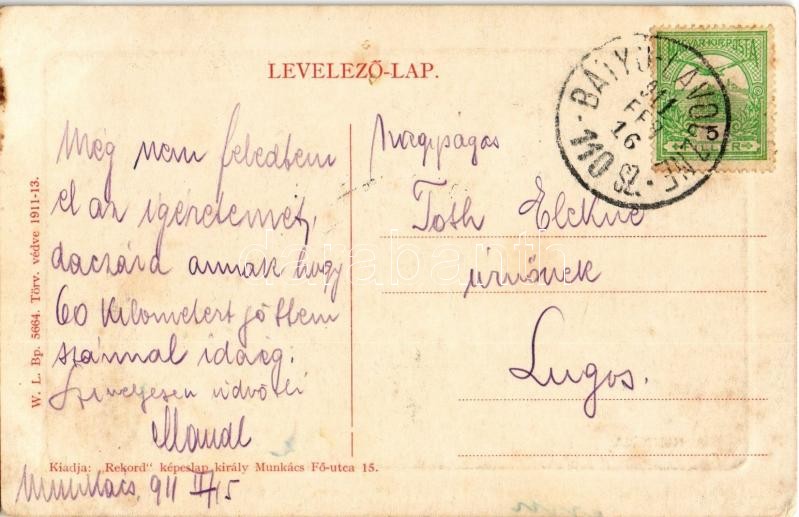 LEVELEZŐ-LAP.
MAGYAR KIR. POSTA
5
FILLÉR
BATYU-LAVOCZNE
911
FEB
16
110 SZ.
Még nem feledtem
el az igéretemet,
daczára annak hogy
60 Kilometert jöttem
szánnal idáig.
Szivélyesen üdvözli
Mandl
Nagyságos
Toth Elekné
úrnőnek
Lugos.
W. L. Bp. 5664. Törv. védve 1911-13.
Kiadja: „Rekord" képeslap király Munkács Fő-utca 15.
Munkács, 911 II/15
darabanth